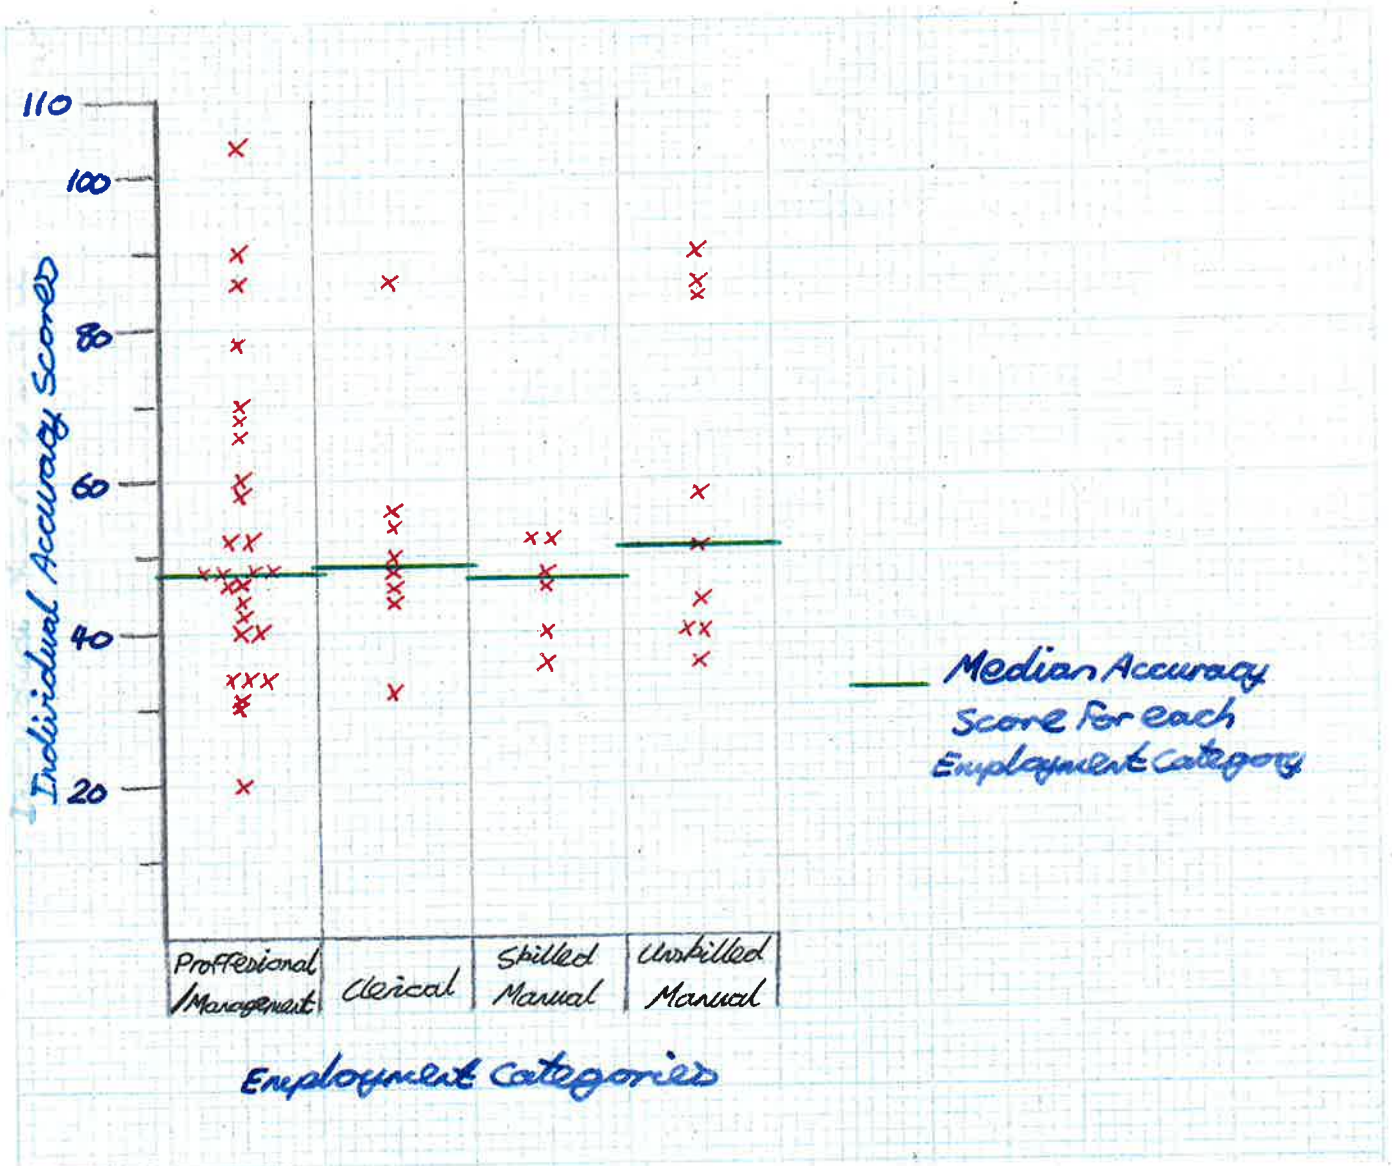 110
100
80
60
40
20
Individual Accuracy Scores
Proffesional
/Management
Clerical
Skilled
Manual
Unskilled
Manual
Employment Categories
Median Accuracy
Score For each
Employment Category